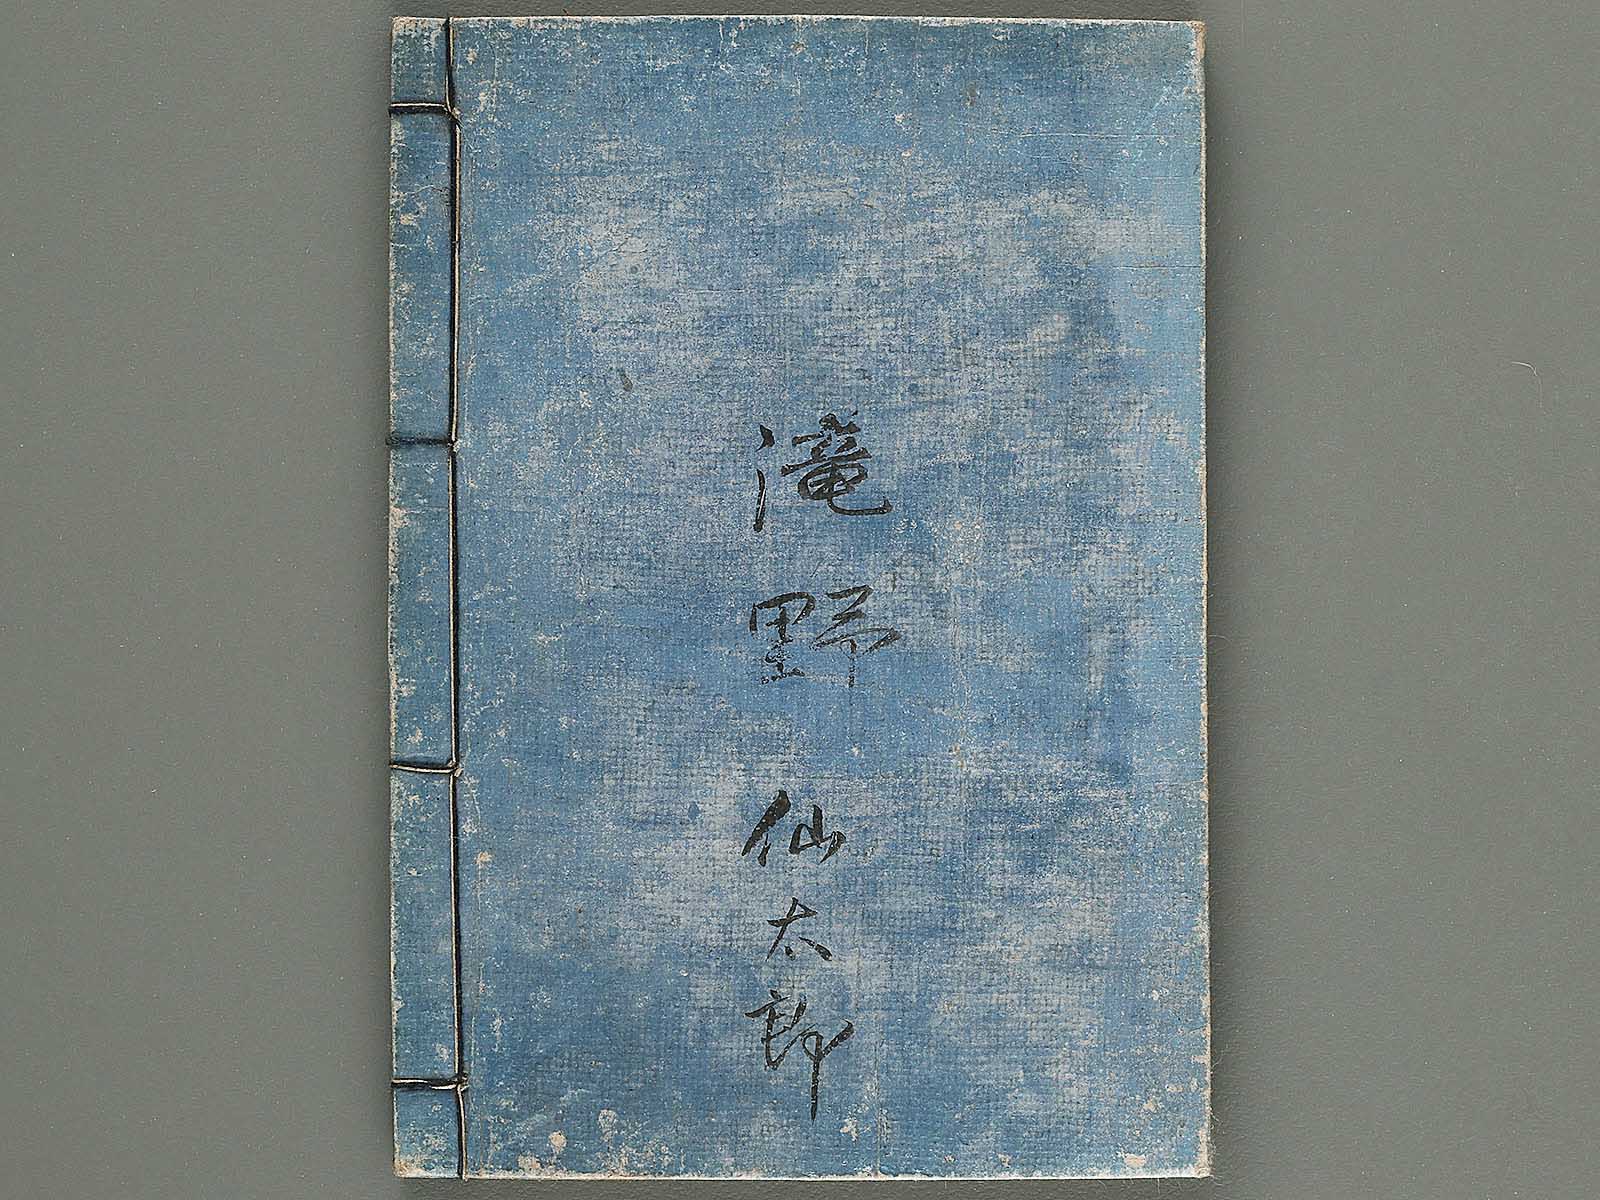 滝野仙太郎